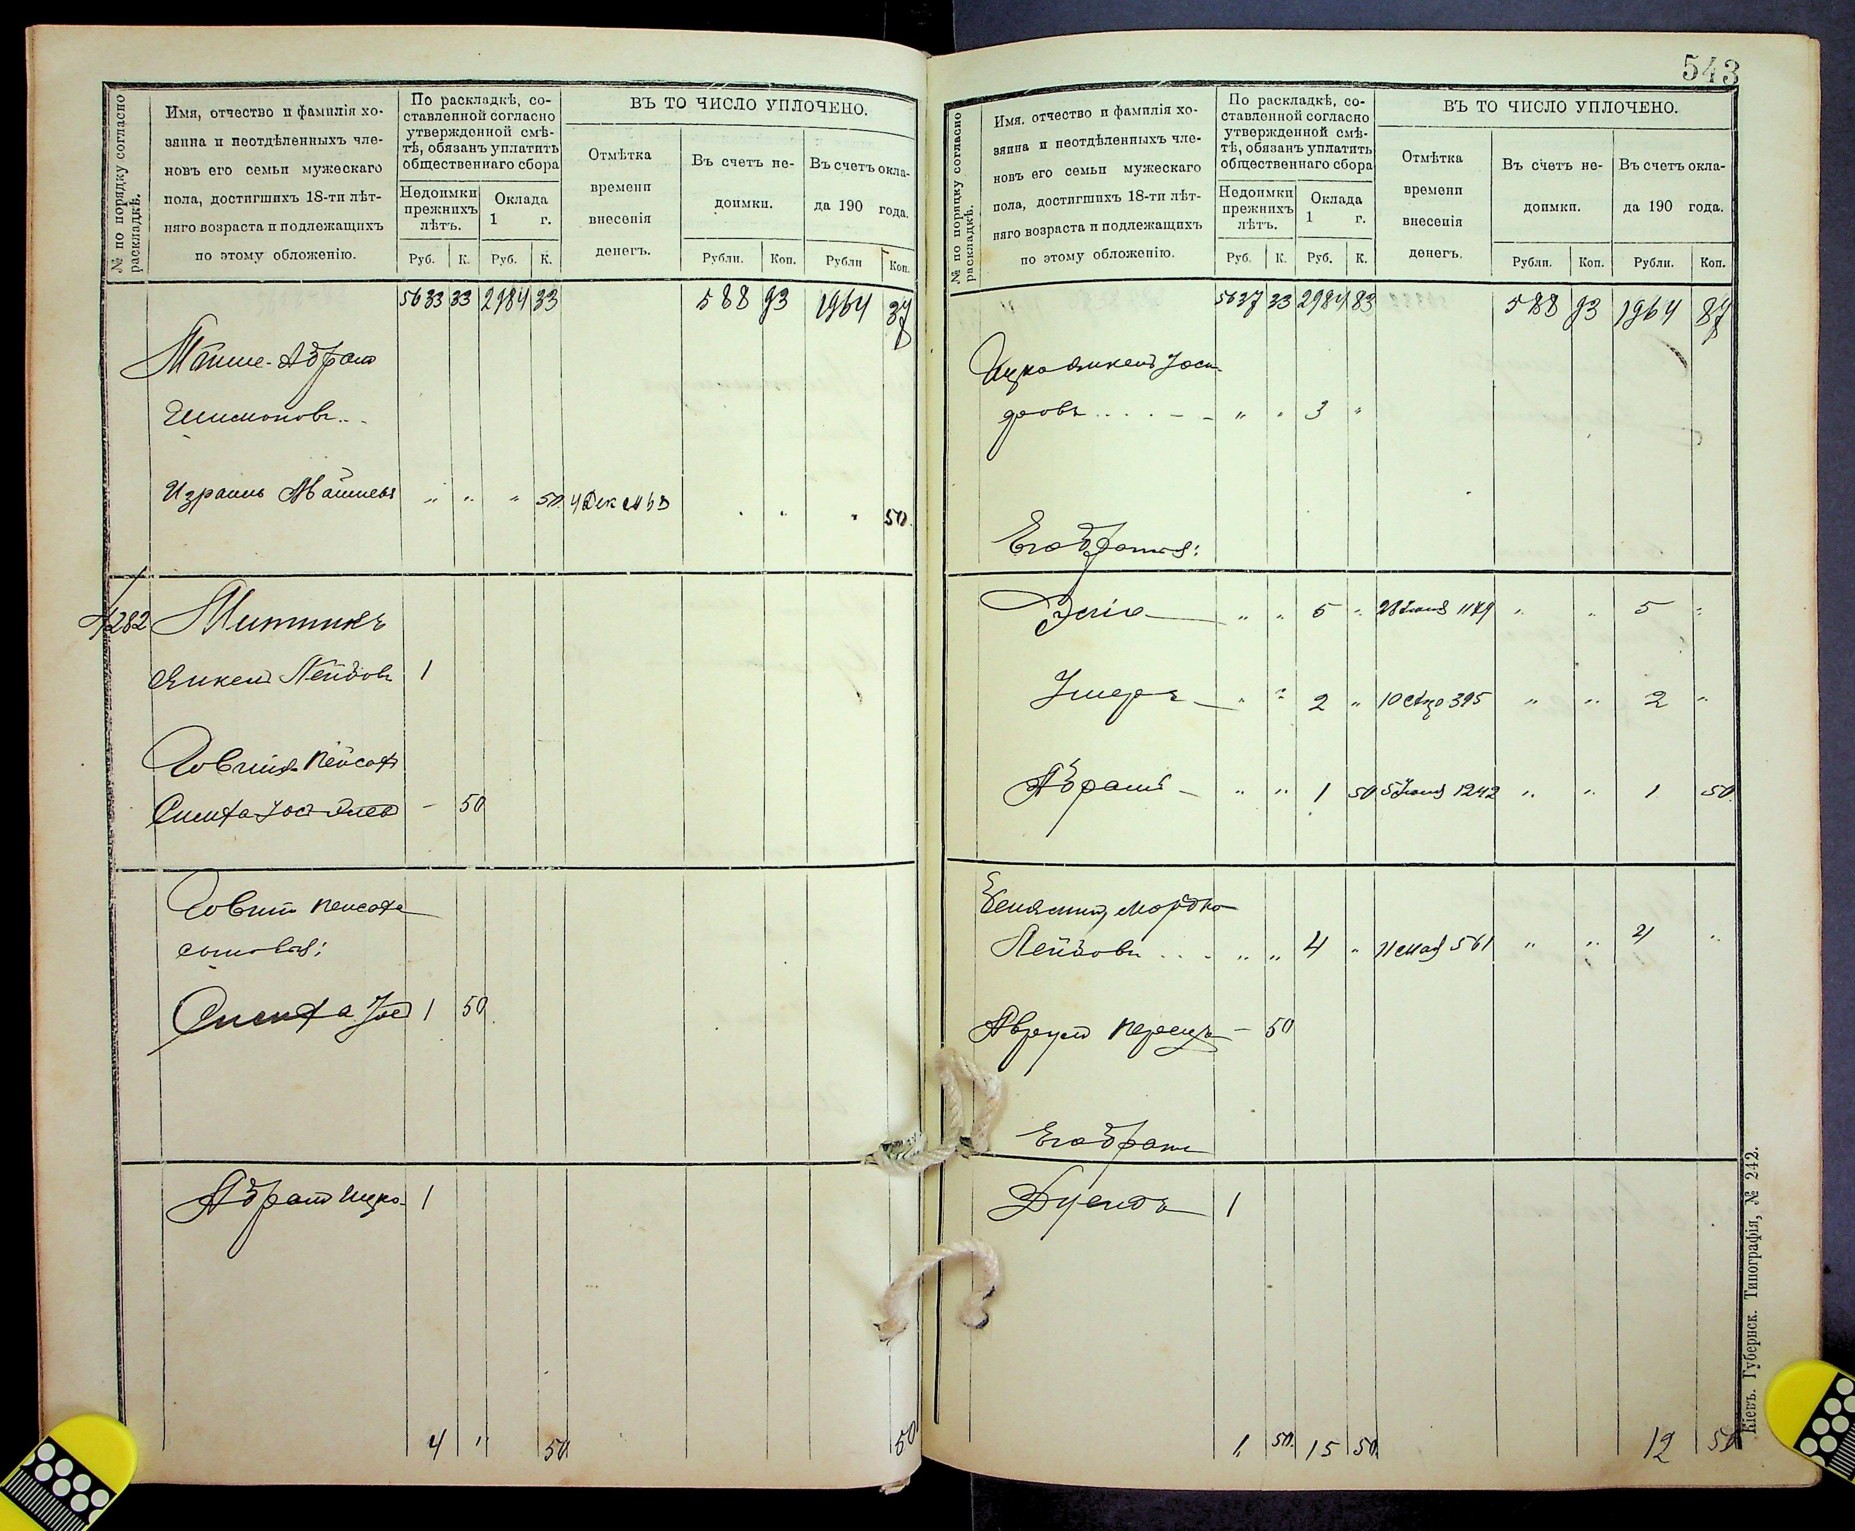 543
№ по порядку согласно раскладкѣ.
Имя, отчество и фамилія хо-
зяина и неотдѣленныхъ чле-
новъ его семьи мужескаго
пола, достигшихъ 18-ти лѣт-
няго возраста и подлежащихъ
по этому обложенію.
По раскладкѣ, со-
ставленной согласно
утвержденной смѣ-
тѣ, обязанъ уплатить
общественнаго сбора
Недоимки
прежнихъ
лѣтъ.
Оклада
1 г.
Руб. К. Руб. К.
ВЪ ТО ЧИСЛО УПЛОЧЕНО.
Отмѣтка
времени
внесенія
денегъ.
Въ счетъ не-
доимки.
Въ счетъ окла-
да 190 года.
Рубли. Коп. Рубли Коп.
5633 33 2984 33 588 93 1964 37
Абрам
Шимоновъ
Израиль „ „ „ 50 4 Декаб „ „ „ 50
1282
Янкель Лейбовъ 1
Пейсах
– 50
Пейсаха
сыновья:
1 50
Абрам Ицко 1
4 „ 50 50
№ по порядку согласно раскладкѣ.
Имя, отчество и фамилія хо-
зяина и неотдѣленныхъ чле-
новъ его семьи мужескаго
пола, достигшихъ 18-ти лѣт-
няго возраста и подлежащихъ
по этому обложенію.
По раскладкѣ, со-
ставленной согласно
утвержденной смѣ-
тѣ, обязанъ уплатить
общественнаго сбора
Недоимки
прежнихъ
лѣтъ.
Оклада
1 г.
Руб. К. Руб. К.
ВЪ ТО ЧИСЛО УПЛОЧЕНО.
Отмѣтка
времени
внесенія
денегъ.
Въ счетъ не-
доимки.
Въ счетъ окла-
да 190 года.
Рубли. Коп. Рубли. Коп.
5637 33 2984 83 588 93 1964 87
Ицко Янкель Иоси-
фовъ „ „ 3 „
Его братья:
„ „ 5 „ „ „ 5 „
„ „ 2 „ 10 395 „ „ 2 „
Абрамъ – „ „ 1 50 5 1242 „ „ 1 50
Беняминъ Мордко
Лейбовъ „ „ 4 „ 11 мая 561 „ „ 4 „
Аврум Перецъ – 50
Его братъ
1
1 50 15 50 12 50
Кіевъ. Губернск. Типографія, № 242.